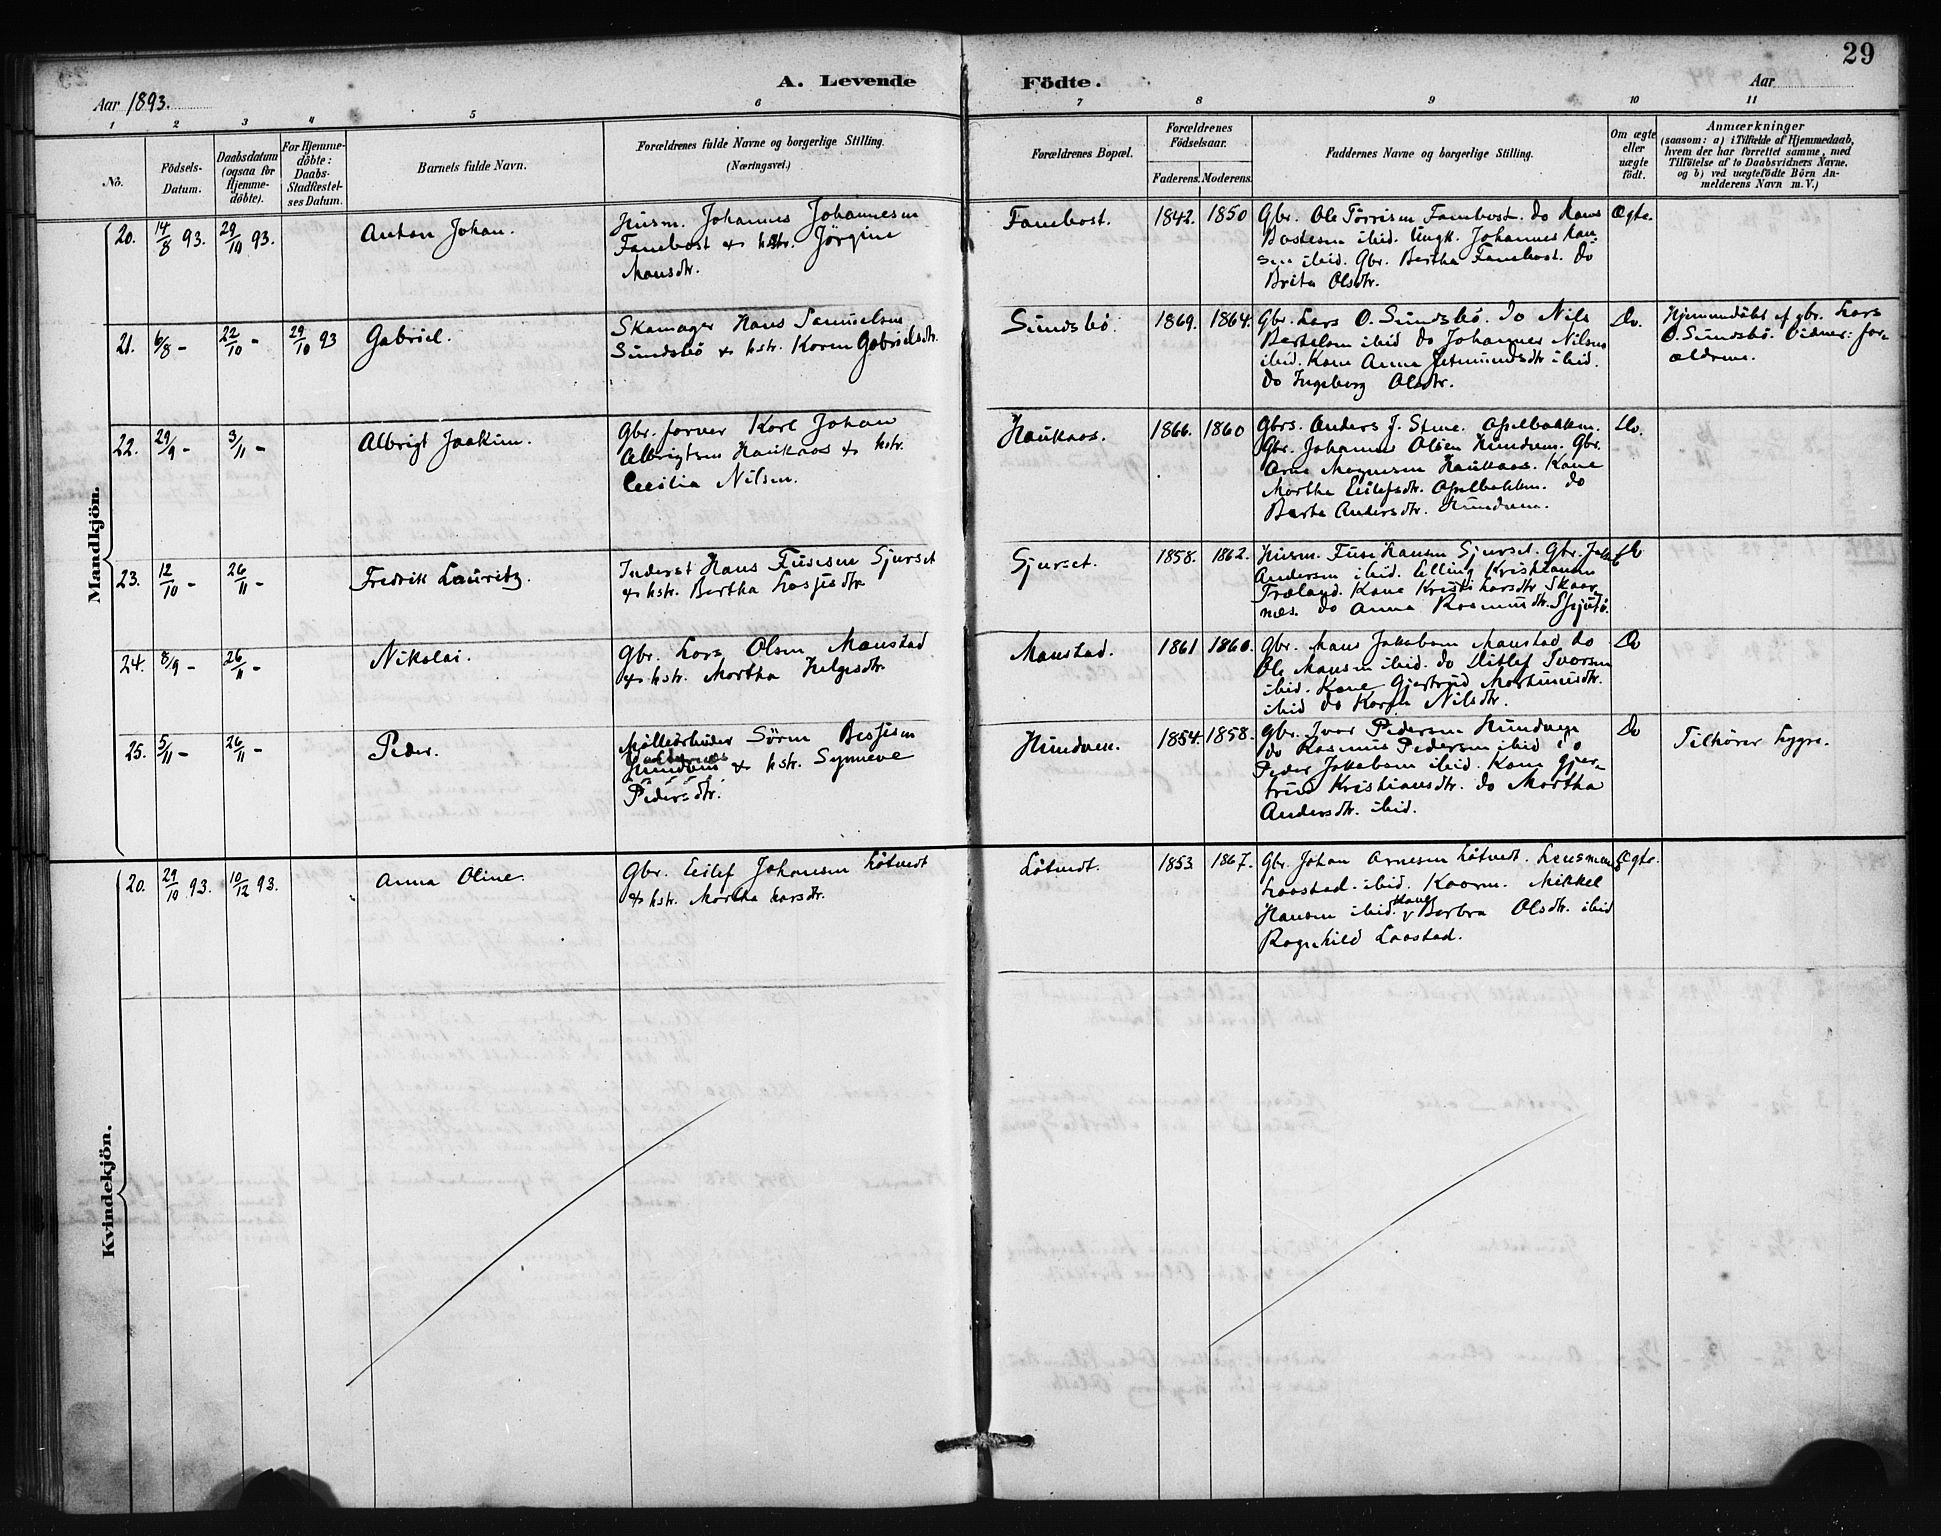 29
A. Levende Födte.
Aar 1893.
Aar
1 2 3 4 5 6 7 8 9 10 11
No.
Födsels-Datum.
Daabsdatum (ogsaa for Hjemme-döbte).
For Hjemme-döbte: Daabs-Stadfæstel-ses Datum.
Barnets fulde Navn.
Forældrenes fulde Navne og borgerlige Stilling.
(Næringsvei.)
Forældrenes Bopæl.
Forældrenes Födselsaar.
Faderens. Moderens.
Faddernes Navne og borgerlige Stilling.
Om ægte eller uægte födt.
Anmærkninger
(saasom: a) i Tilfælde af Hjemmedaab, hvem der har forrettet samme, med Tilföielse af to Daabsvidners Navne, og b) ved uægtefödte Börn An-melderens Navn m. V.)
Mandkjön.
20. 14/8 93. 29/10 93. Anton Johan.
Husm. Johannes Johannesen
Fanebost & hstr. Jørgine
Mansdtr.
Fanebost. 1842. 1850
Gbr. Ole Tørrisen Fanebost. do Hans
ibid. Ungk. Johannes Han-
sen ibid. Gbr. Bertha Fanebost. do
Brita Olsdtr.
Ægte.
21. 6/8 - 22/10 - 29/10 93 Gabriel.
Skomager Hans Samuelsen
Sundsbö & hstr. Karen Gabrielsdtr.
Sundsbö. 1869. 1864.
Gbr. Lars O. Sundsbö. do Nils
Bertelsen ibid do Johannes Nilsen
ibid. Kone Anna Jetmundsdtr ibid.
do Ingeborg Olsdtr.
Do.
Hjemmedöbt af gbr. Lars
O. Sundsbö. Vidner: for-
ældrene.
22. 29/9 - 3/11 - Albrigt Joakim.
Gbr. farver Karl Johan
Albrigtsen Haukaas & hstr.
Cecilia Nilsen.
Haukaas. 1866. 1860
Gbrs. Anders J. Apelbakken.
Gbr. Johannes Olsen Hundven. Gbr.
Arne Magnesen Haukaas. Kone
Martha Eilefsdtr. Apelbakken. do
Berta Andersdtr. Hundven.
Do.
23. 12/10 - 26/11 - Fredrik Lauritz.
Inderst Hans Fusesen Sjurset
& hstr. Bertha Lassesdtr.
Sjurset. 1858. 1862.
Husm. Fuse Hansen Sjurset. Gbr.
Andersen ibid. Elling Kristiansen
Træland. Kone
næs. do Anna Rasmusdtr.
Do
24. 8/9 - 26/11 - Nikolai.
Gbr. Lars Olsen Manstad
& hstr. Martha Helgesdtr
Manstad. 1861 1860.
Gbr. Mans Jakobsen Manstad do
Ole Mansen ibid. do Ditlef Ivarsen
ibid. Kone Gjertrud Martinusdtr.
ibid do Karen Nilsdtr.
Do
25. 5/11 - 26/11 - Peder.
Mølleärbeider Sören
& hstr. Synneve
Pedersdtr.
Hundven. 1854. 1858.
Gbr. Ivar Pedersen Hundven
do Rasmus Pedersen ibid do
Peder Jakobsen ibid. Kone Gjer-
trud Kristiansdtr. do Martha
Andersdtr. ibid.
Do
Tilhörer Lygre.
Kvindekjön.
20. 29/10 93. 10/12 93. Anna Oline.
Gbr. Eilef Johansen Løtvedt
& hstr. Martha Larsdtr.
Løtvedt. 1853 1867.
Gbr. Johan Arnesen Løtvedt. Lensmann
Laastad. ibid. Mikkel
Hansen ibid. Kone Barbra Olsdtr. ibid
Ragnhild Laastad.
Ægte.